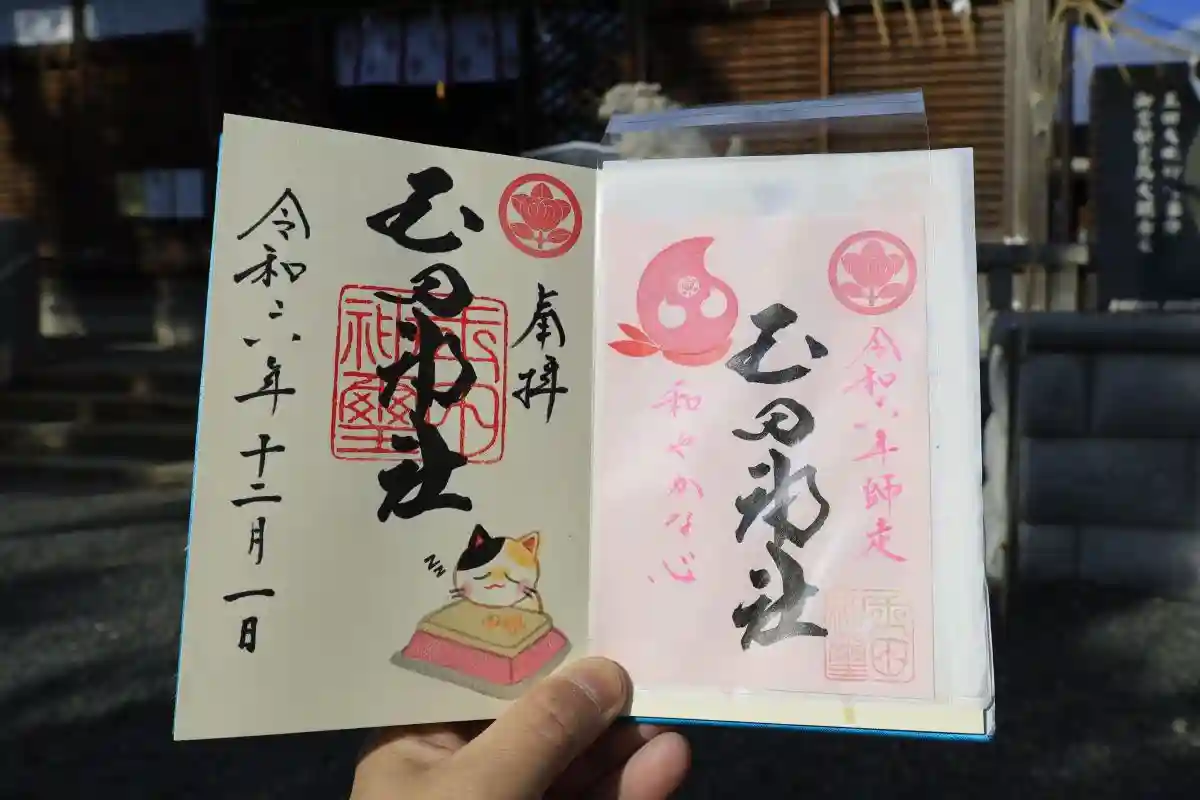 令和六年師走
玉田神社
和やかな心
奉拝
玉田神社
令和六年十二月一日
zzz